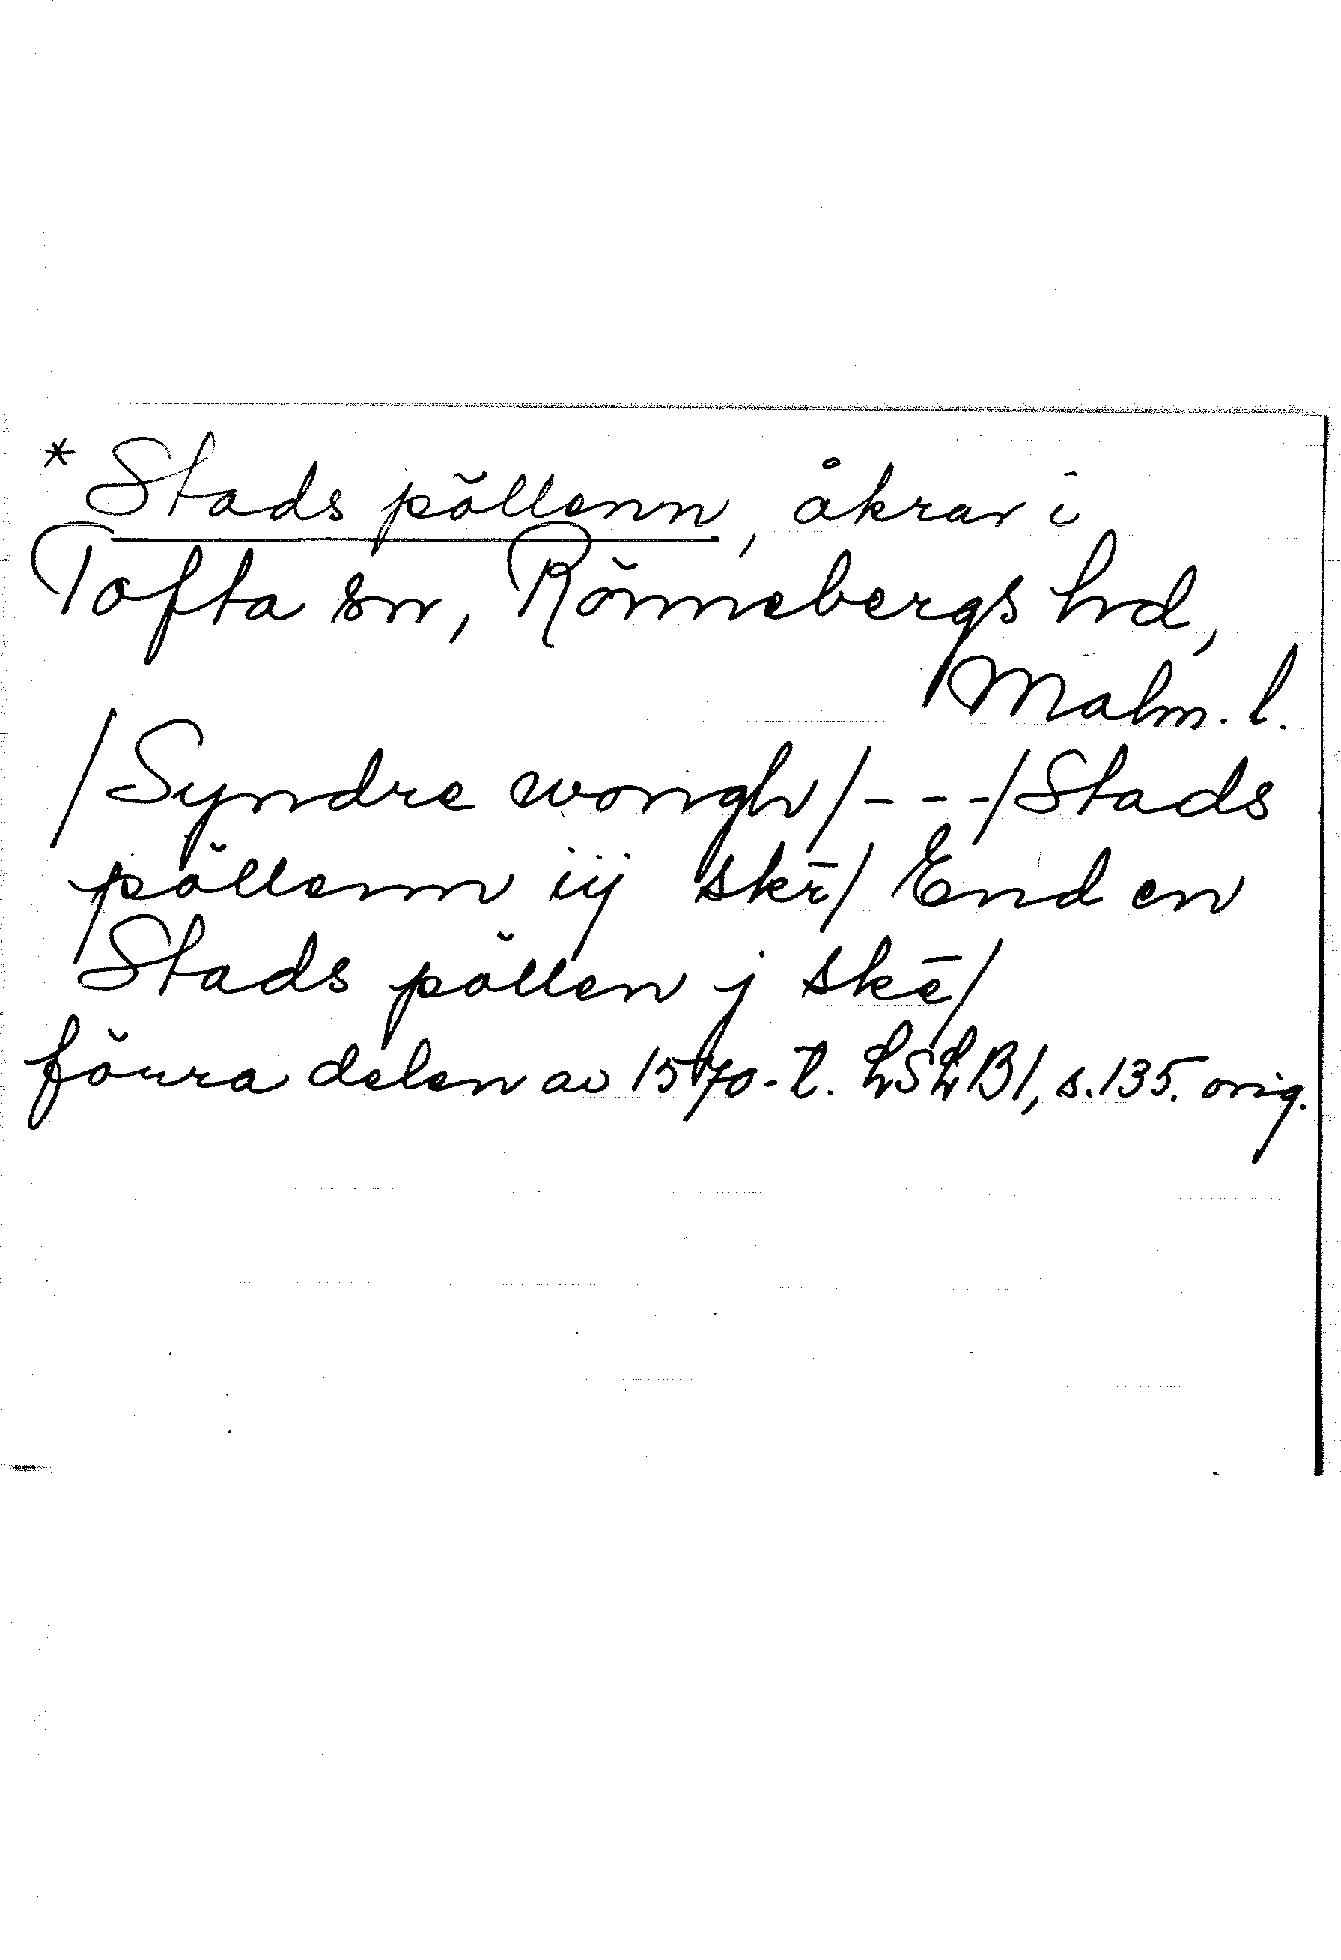 * Stads pöllenn, åkrar i
Tofta sn, Rönnebergs hd,
Malm. l.
/Syndre wongh/---/Stads
pöllenn iij skr̄/ End en
Stads pöllen j skē/
förra delen av 1570-t. LSLB1, s.135. orig.